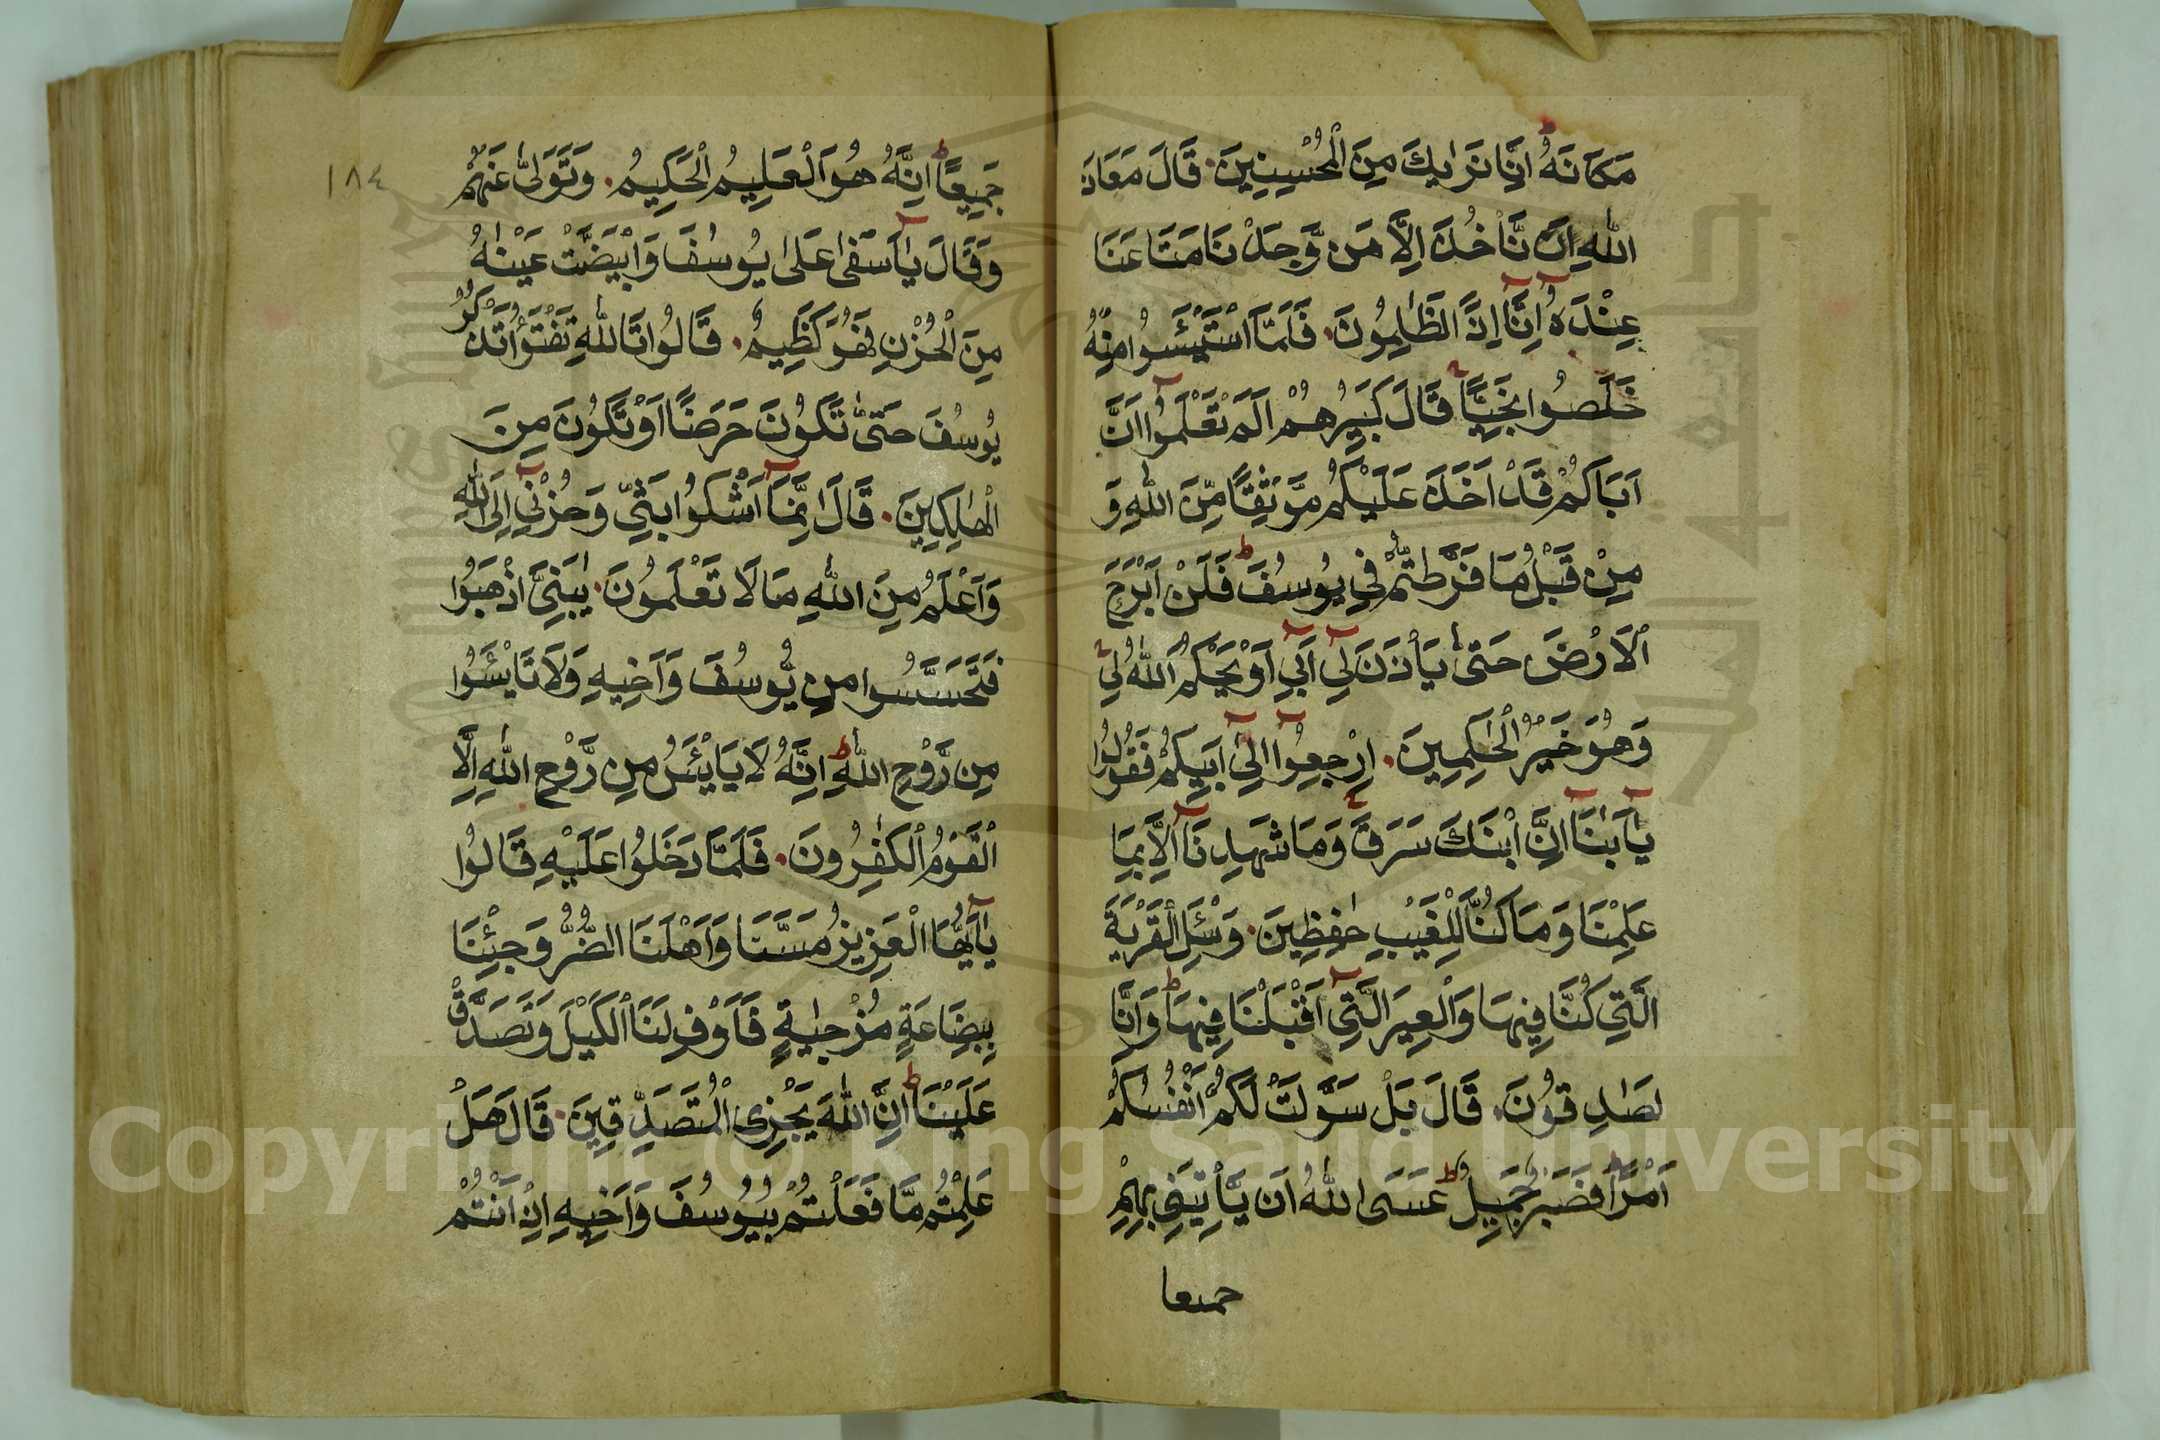 مَكَانَهُ اِنَّا نَرٰىكَ مِنَ الْمُحْسِنِينَ قَالَ مَعَاذَ
اللّٰهِ اَنْ نَّاْخُذَ اِلَّا مَنْ وَّجَدْنَا مَتَاعَنَا
عِنْدَهٗٓ اِنَّآ اِذًا لَّظٰلِمُونَ فَلَمَّا اسْتَيْـَٔسُوا مِنْهُ
خَلَصُوا نَجِيًّا قَالَ كَبِيرُهُمْ اَلَمْ تَعْلَمُوٓا اَنَّ
اَبَاكُمْ قَدْ اَخَذَ عَلَيْكُمْ مَّوْثِقًا مِّنَ اللّٰهِ وَ
مِنْ قَبْلُ مَا فَرَّطْتُّمْ فِي يُوسُفَ فَلَنْ اَبْرَحَ
الْاَرْضَ حَتّٰى يَاْذَنَ لِيٓ اَبِيٓ اَوْ يَحْكُمَ اللّٰهُ لِي
وَهُوَ خَيْرُ الْحٰكِمِينَ اِرْجِعُوٓا اِلٰٓى اَبِيكُمْ فَقُولُوا
يٰٓاَبَانَآ اِنَّ ابْنَكَ سَرَقَ وَمَا شَهِدْنَآ اِلَّا بِمَا
عَلِمْنَا وَمَا كُنَّا لِلْغَيْبِ حٰفِظِينَ وَسْـَٔلِ الْقَرْيَةَ
الَّتِي كُنَّا فِيهَا وَالْعِيرَ الَّتِيٓ اَقْبَلْنَا فِيهَا وَاِنَّا
لَصٰدِقُونَ قَالَ بَلْ سَوَّلَتْ لَكُمْ اَنْفُسُكُمْ
اَمْرًا فَصَبْرٌ جَمِيلٌ عَسَى اللّٰهُ اَنْ يَّاْتِيَنِي بِهِمْ
جميعا
١٨٤
جَمِيعًا اِنَّهُ هُوَ الْعَلِيمُ الْحَكِيمُ وَتَوَلّٰى عَنْهُمْ
وَقَالَ يٰٓاَسَفٰى عَلٰى يُوسُفَ وَابْيَضَّتْ عَيْنٰهُ
مِنَ الْحُزْنِ فَهُوَ كَظِيمٌ قَالُوا تَاللّٰهِ تَفْتَؤُا تَذْكُرُ
يُوسُفَ حَتّٰى تَكُونَ حَرَضًا اَوْ تَكُونَ مِنَ
الْهٰلِكِينَ قَالَ اِنَّمَآ اَشْكُوا بَثِّي وَحُزْنِيٓ اِلَى اللّٰهِ
وَاَعْلَمُ مِنَ اللّٰهِ مَا لَا تَعْلَمُونَ يٰبَنِيَّ اذْهَبُوا
فَتَحَسَّسُوا مِنْ يُّوسُفَ وَاَخِيهِ وَلَا تَايْـَٔسُوا
مِنْ رَّوْحِ اللّٰهِ اِنَّهُ لَا يَايْـَٔسُ مِنْ رَّوْحِ اللّٰهِ اِلَّا
الْقَوْمُ الْكٰفِرُونَ فَلَمَّا دَخَلُوا عَلَيْهِ قَالُوا
يٰٓاَيُّهَا الْعَزِيزُ مَسَّنَا وَاَهْلَنَا الضُّرُّ وَجِئْنَا
بِبِضَاعَةٍ مُزْجٰىةٍ فَاَوْفِ لَنَا الْكَيْلَ وَتَصَدَّقْ
عَلَيْنَا اِنَّ اللّٰهَ يَجْزِي الْمُتَصَدِّقِينَ قَالَ هَلْ
عَلِمْتُمْ مَّا فَعَلْتُمْ بِيُوسُفَ وَاَخِيهِ اِذْ اَنْتُمْ
Copyright © King Saud University